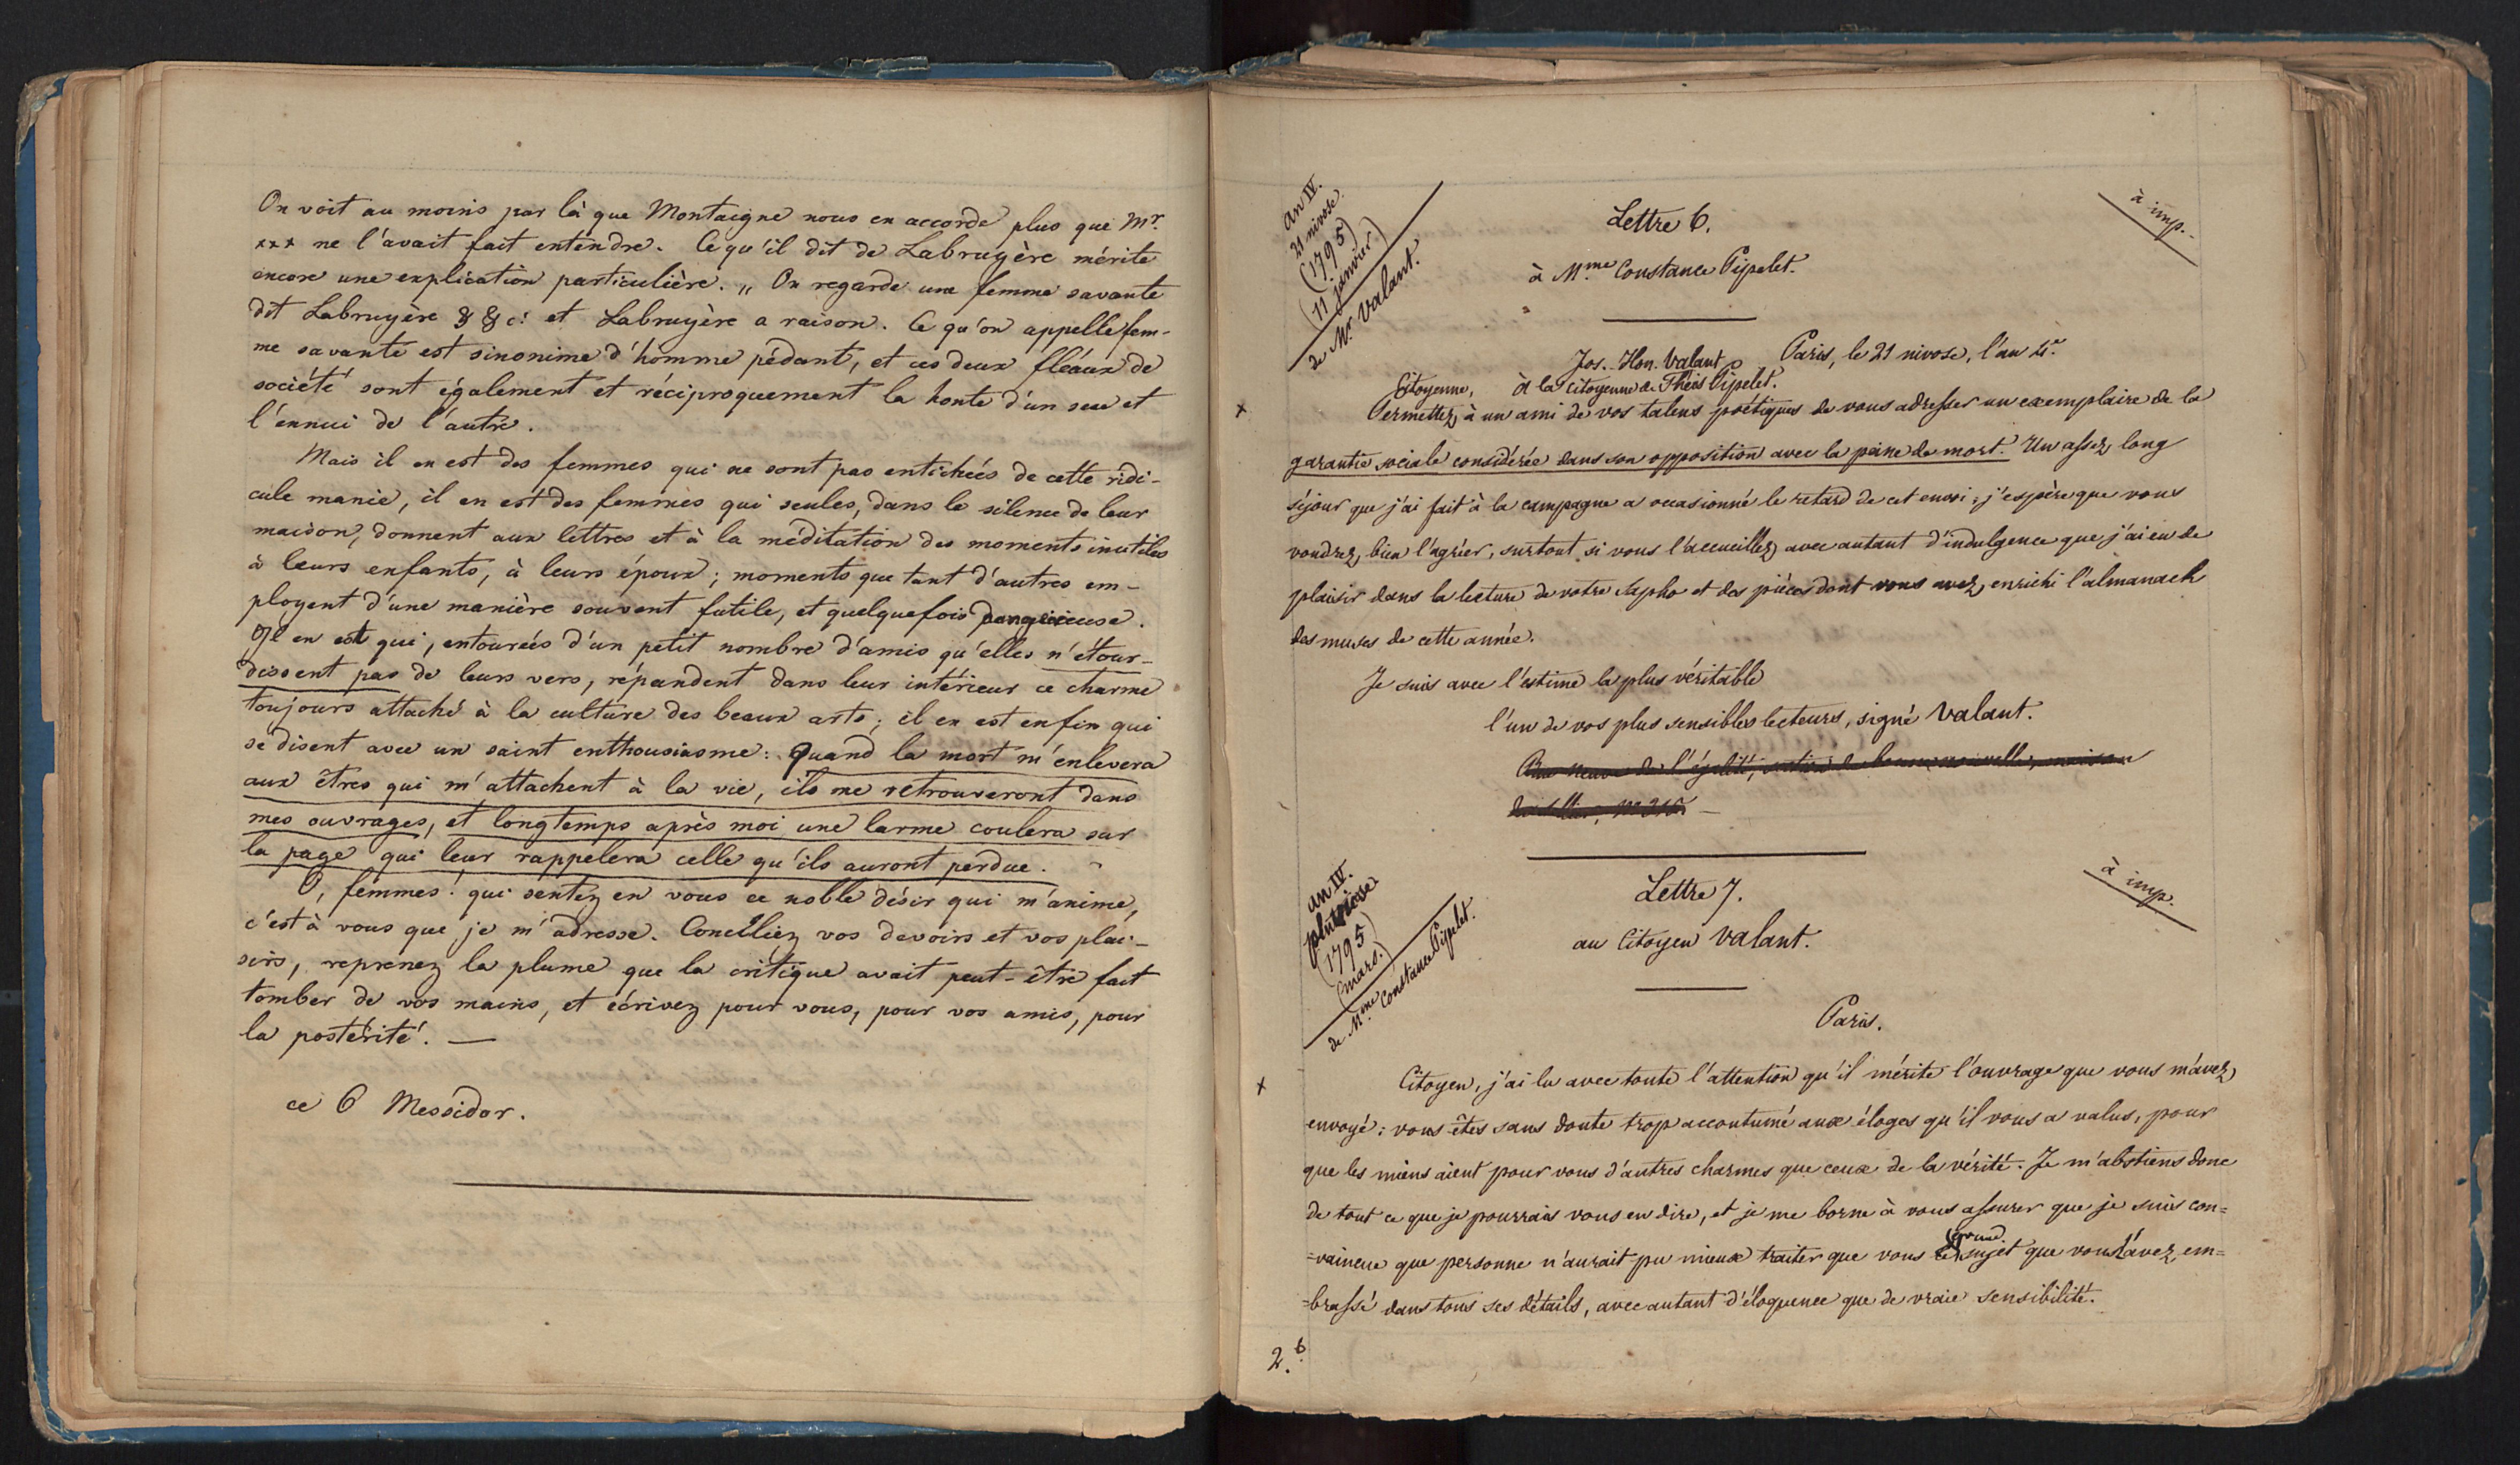 On voit au moins par là que Montaigne nous en accorde plus que Mr.
*** ne l'avait fait entendre. Ce qu'il dit de Labruyère mérite
encore une explication particulière. „ On regarde une femme savante
dit Labruyère & & c: et Labruyère a raison. Ce qu'on appelle fem-
me savante est sinonime d'homme pédant, et ces deux fléaux de
société sont également et réciproquement la honte d'un sexe et
l'ennui de l'autre.
Mais il en est des femmes qui ne sont pas entichées de cette ridi-
cule manie, il en est des femmes qui seules, dans le silence de leur
maison, donnent aux lettres et à la méditation des moments inutiles
à leurs enfants, à leurs époux; moments que tant d'autres em-
ployent d'une manière souvent futile, et quelquefois dangereuse.
Il en est qui, entourées d'un petit nombre d'amis qu'elles n'étour-
dissent pas de leurs vers, répandent dans leur intérieur ce charme
toujours attaché à la culture des beaux arts; il en est enfin qui
se disent avec un saint enthousiasme: Quand la mort m'enlevera
aux êtres qui m'attachent à la vie, ils me retrouveront dans
mes ouvrages, et longtemps après moi une larme coulera sur
la page qui leur rappelera celle qu'ils auront perdue.
O, femmes! qui sentez en vous ce noble désir qui m'anime,
c'est à vous que je m'adresse. Conciliez vos devoirs et vos plai-
sirs, reprenez la plume que la critique avait peut-être fait
tomber de vos mains, et écrivez pour vous, pour vos amis, pour
la postérité. —
ce 6 Messidor.
an IV.
21 nivose
(1795)
(11 janvier)
de Mr. Valant.
à imp.
Lettre 6.
à Mme. Constance Pipelet.
Jos. Hon. Valant
Paris, le 21 nivose, l'an 4e.
Citoyenne, à la Citoyenne de Théis Pipelet.
x Permettez à un ami de vos talens poétiques de vous adresser un exemplaire de la
garantie sociale considérée dans son opposition avec la peine de mort. Un assez long
séjour que j'ai fait à la campagne a occasionné le retard de cet envoi; j'espère que vous
voudrez bien l'agréer, surtout si vous l'accueillez avec autant d'indulgence que j'ai eu de
plaisir dans la lecture de votre Sapho et des pièces dont vous avez enrichi l'almanach
des muses de cette année.
Je suis avec l'estime la plus véritable
l'un de vos plus sensibles lecteurs, signé Valant.
Rue neuve de l'égalité, section de bonne nouvelle, maison
an IV.
pluviose
(1795)
(mars.)
de Mme. Constance Pipelet.
à imp.
Lettre 7.
au Citoyen Valant.
Paris.
x Citoyen, j'ai lu avec toute l'attention qu'il mérite l'ouvrage que vous m'avez
envoyé: vous êtes sans doute trop accoutumé aux éloges qu'il vous a valus, pour
que les miens aient pour vous d'autres charmes que ceux de la vérité. Je m'abstiens donc
de tout ce que je pourrais vous en dire, et je me borne à vous assurer que je suis con=
=vaincue que personne n'aurait pu mieux traiter que vous ce grand sujet que vous avez em=
=brassé dans tous ses détails, avec autant d'éloquence que de vraie sensibilité.
2.6